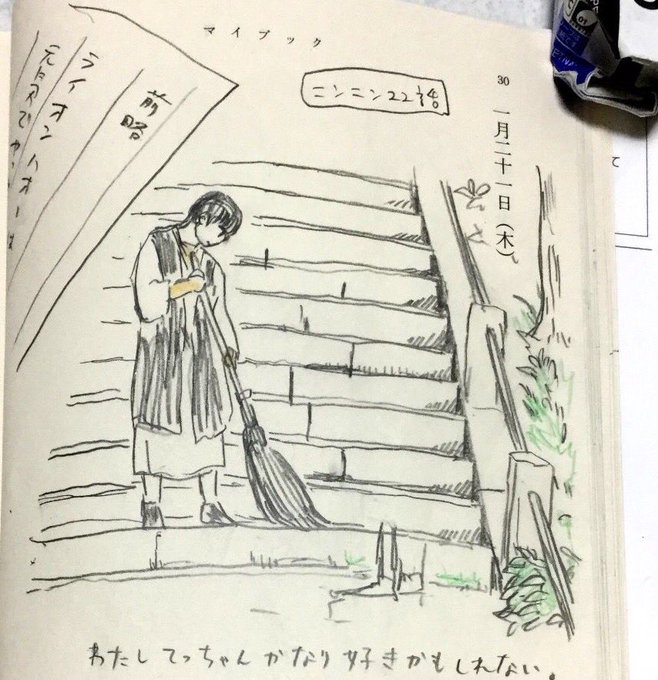 マイブック
30
一月二十一日（木）
ニンニン22話
前略
ライオンハオーは
元気でやっ
わたしてっちゃんかなり好きかもしれない。